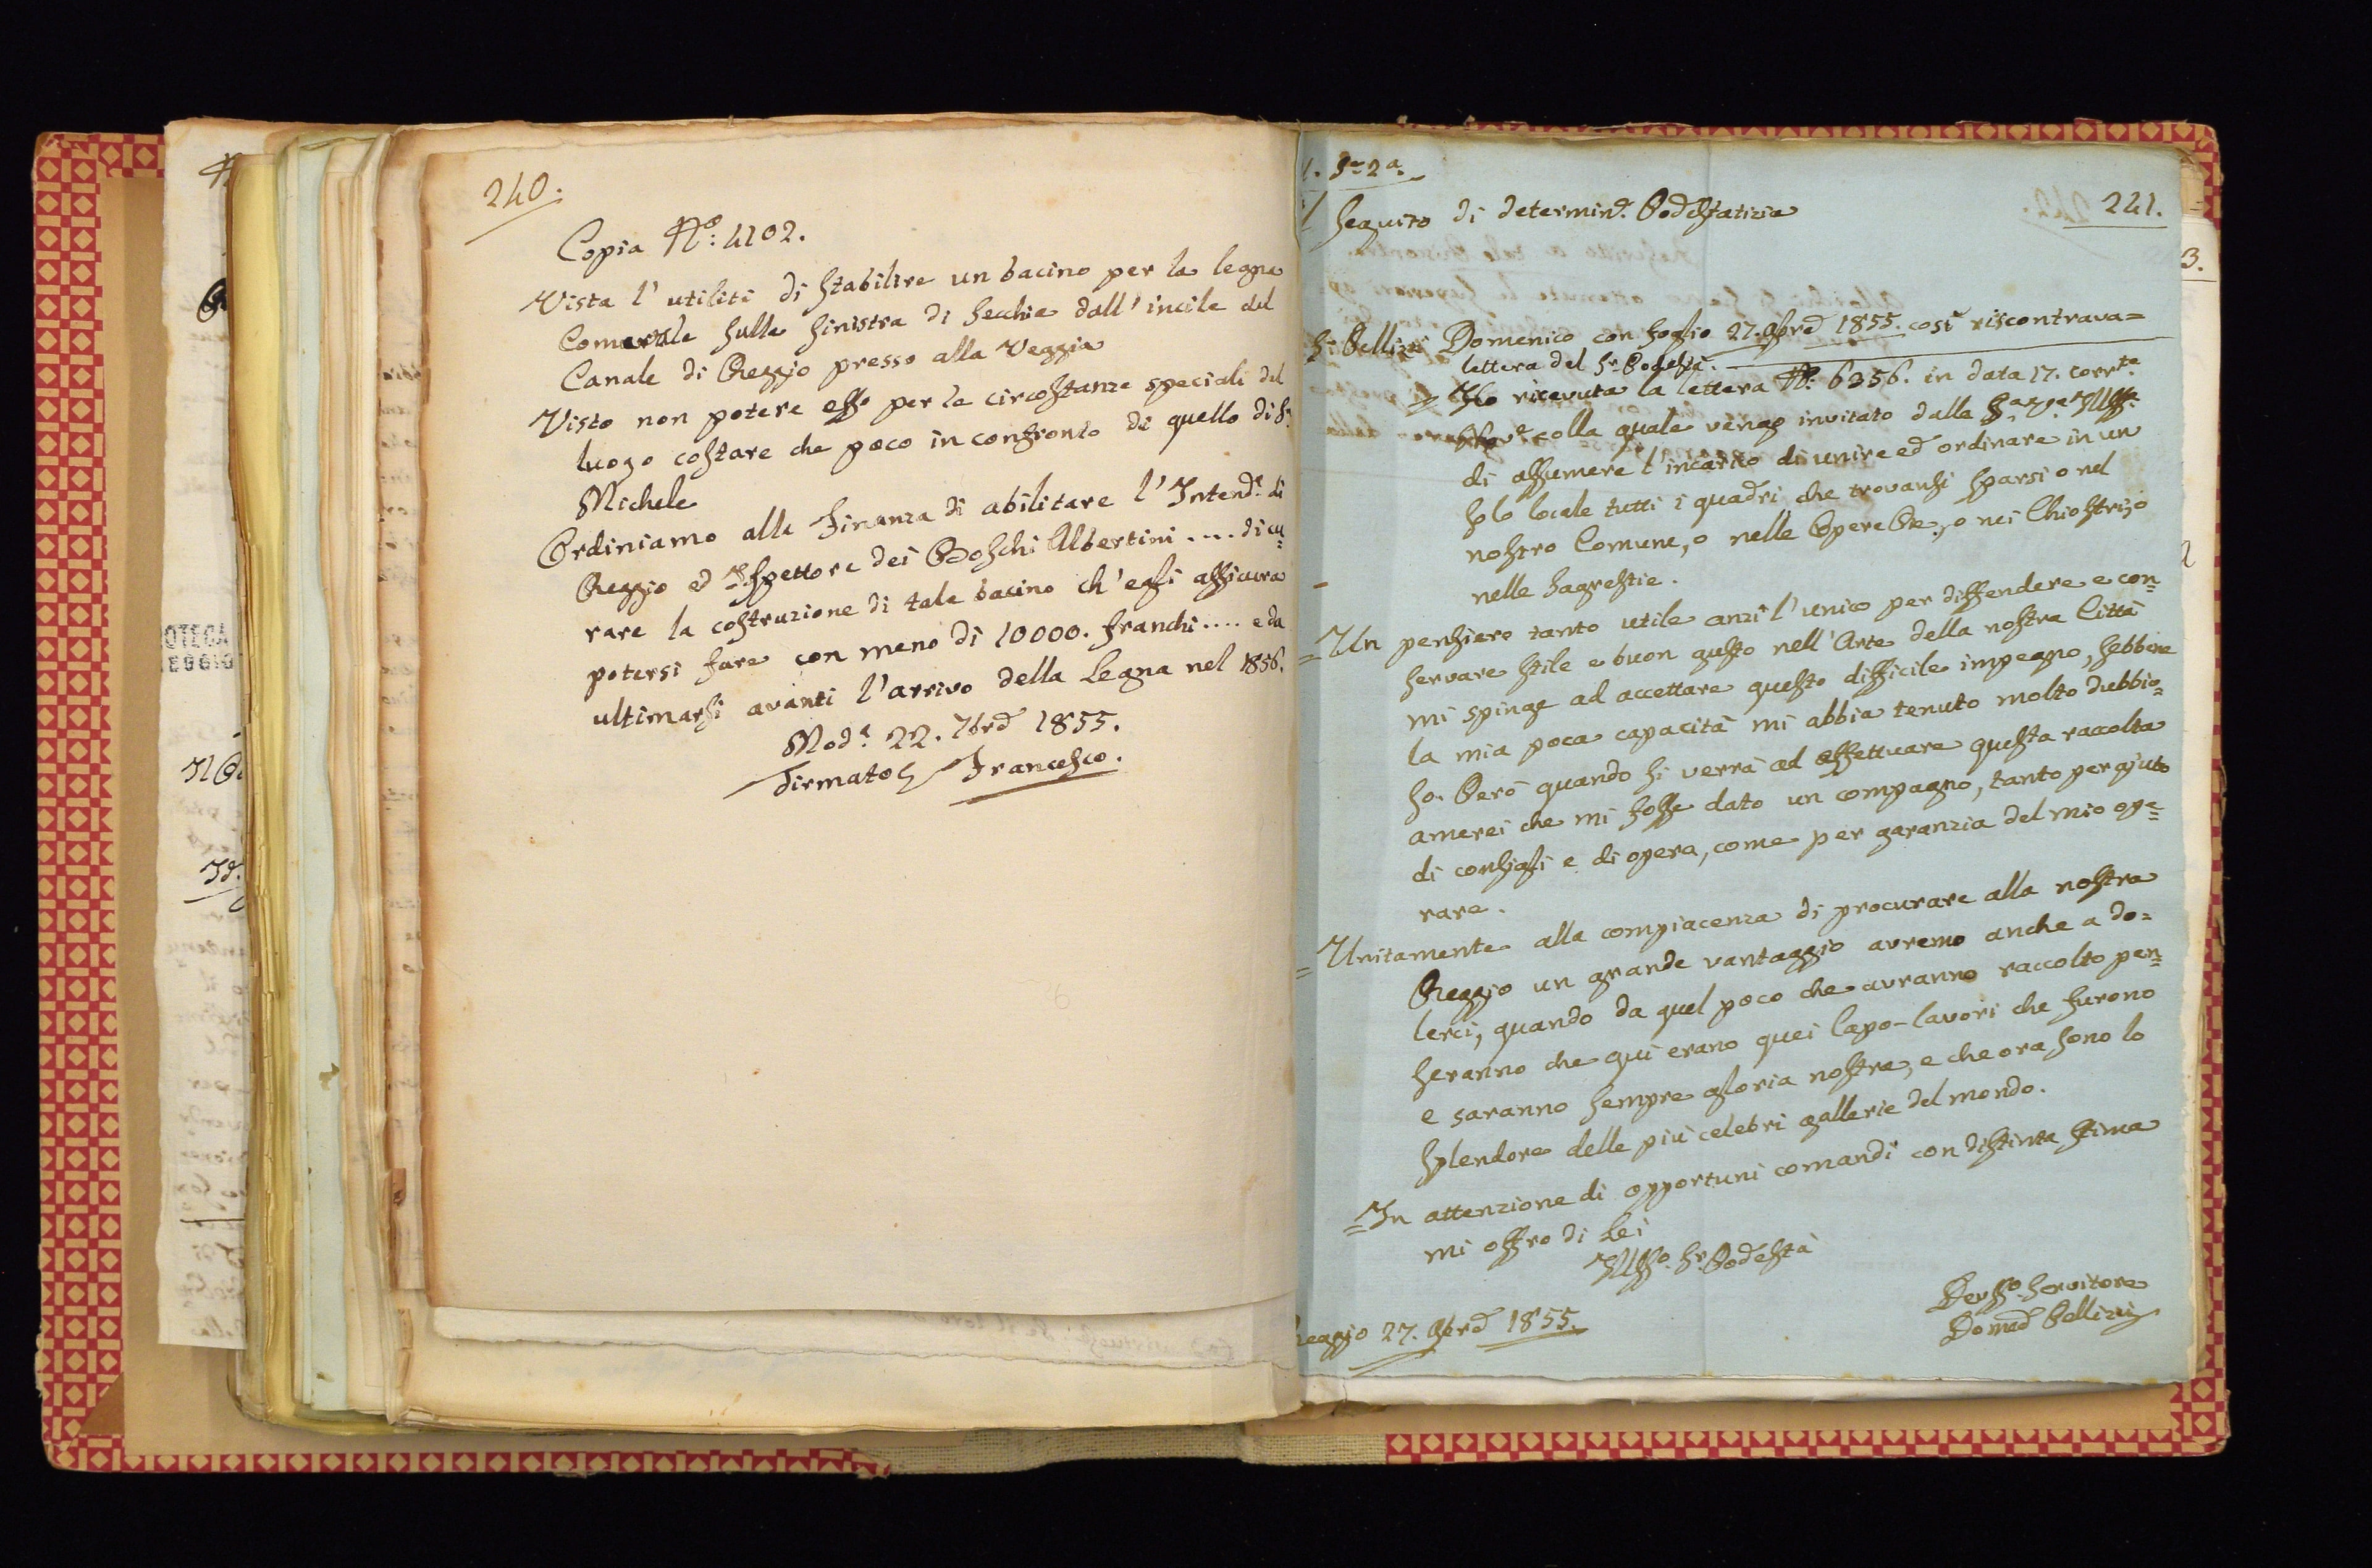 240.
Copia N.º: 4102.
Vista l'utiliti di stabilire un bacino per la legna
Comerale sulla sinistra di Secchia dall'incile del
Canale di Reggio presso alla Veggia
Visto non potere esso per le circostanze speciali del
luogo costare che poco in confronto di quello di S.
Michele
Ordiniamo alla Finanza di abilitare l'Intend.e di
Reggio ed Ispettore dei Boschi Albertini .... di cu=
rare la costruzione di tale bacino ch'egli assicura
potersi fare con meno di 10000. franchi .... e da
ultimarsi avanti l'arrivo della Legna nel 1856.
Mod.a 22. 7bre 1855.
Firmato Francesco.
OTECA
EGGIO
Il
3.
241.
S.e 2a.
Seguito di determin.e Podestatizia
S.r Pellizzi Domenico con foglio 27. 9bre 1855. così riscontrava=
lettera del S.r Podestà.
= Ho ricevuta la lettera N.º: 6356. in data 17. corr.te
colla quale vengo invitato dalla S.a V.a Ill.ssa
di assumere l'incarico di unire ed ordinare in un
solo locale tutti i quadri che trovansi sparsi o nel
nostro Comune, o nelle Opere Pie, o nei Chiostri, o
nelle Sagrestie.
= Un pensiero tanto utile anzi l'unico per diffendere e con=
servare stile e buon gusto nell'Arte della nostra Città
mi spinge ad accettare questo difficile impegno, sebbene
la mia poca capacità mi abbia tenuto molto dubbio=
so. Però quando si verrà ad effettuare questa raccolta
amerei che mi fosse dato un compagno, tanto per ajuto
di consigli e di opera, come per garanzia del mio ope=
rare.
= Unitamente alla compiacenza di procurare alla nostra
Reggio un grande vantaggio avremo anche a do=
lerci, quando da quel poco che avranno raccolto pen=
seranno che qui erano quei Capo-lavori che furono
e saranno sempre gloria nostra, e che ora sono lo
splendore delle più celebri gallerie del mondo.
= In attenzione di opportuni comandi con distinta stima
mi offro di Lei
Ill.sso S.r Podestà
Dev.sso Servitore
Dom.co Pellizzi
Reggio 27. 9bre 1855.